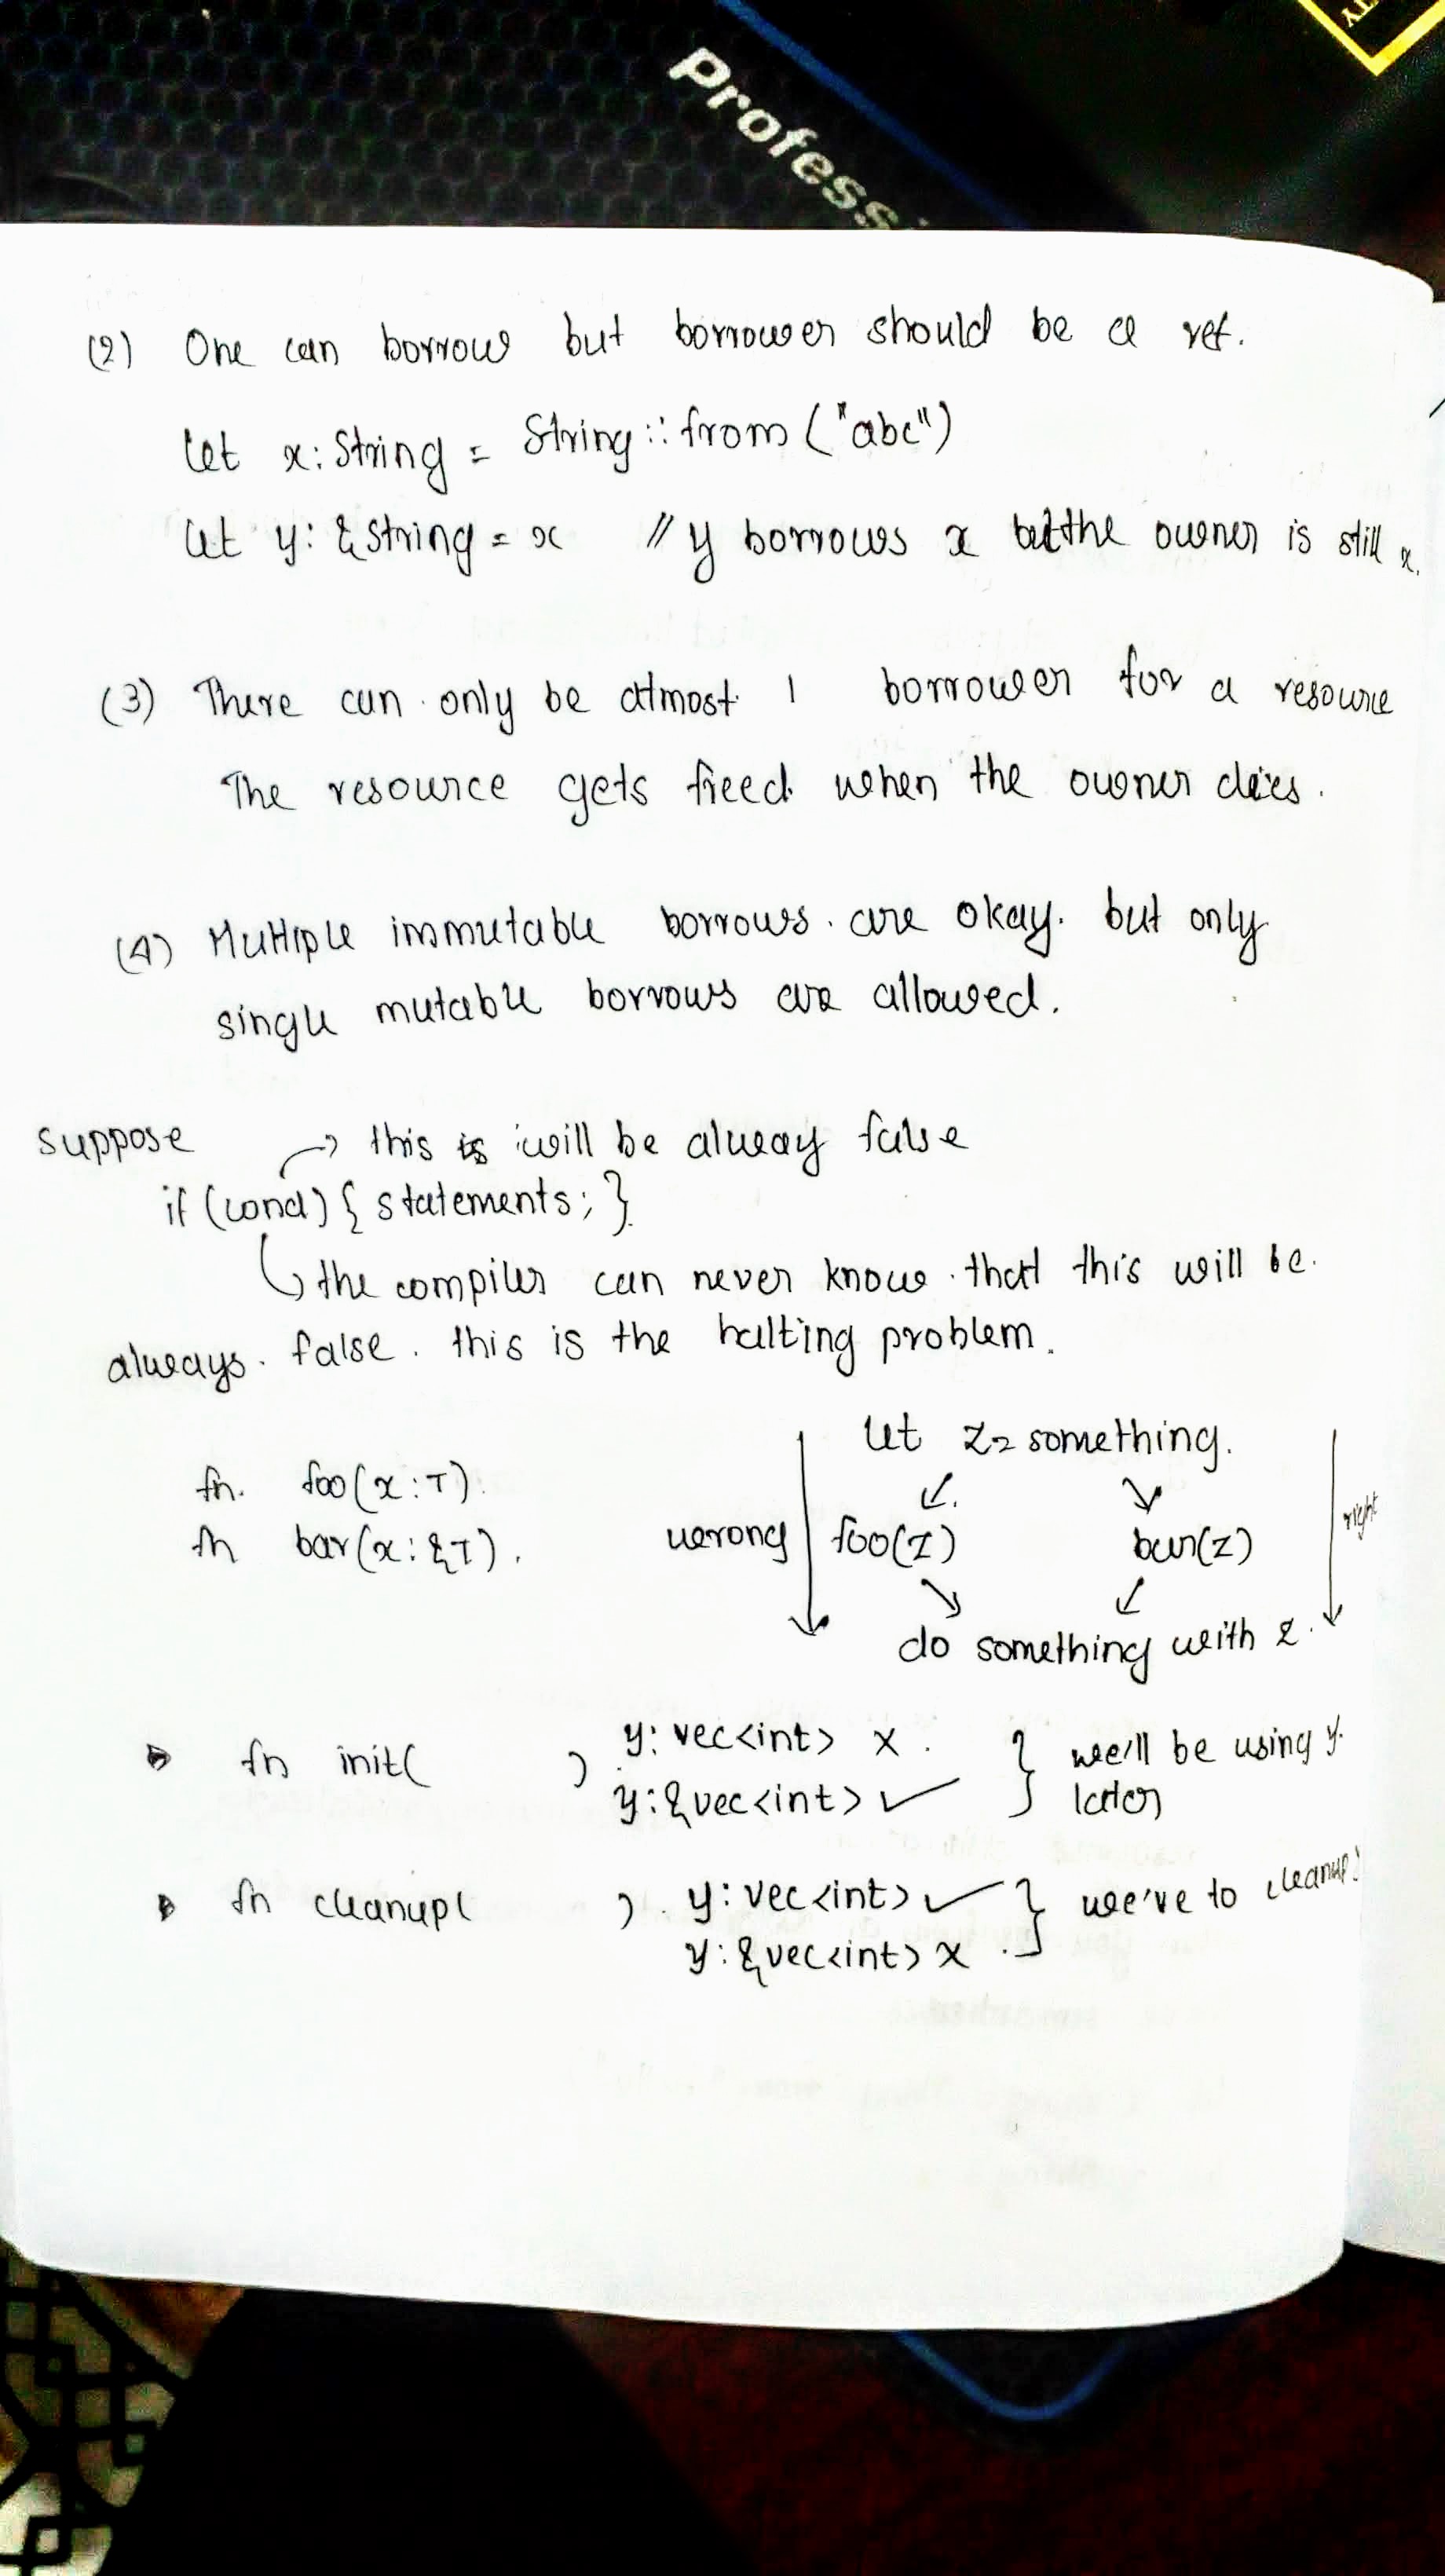 Profess
TY
(2) One can borrow but borrower should be a ref.
let x: String = String::from ("abc")
let y: &String = x // y borrows x but the owner is still x.
(3) There can only be atmost 1 borrower for a resource
The resource gets freed when the owner dies.
(4) Multiple immutable borrows are okay. but only
single mutable borrows are allowed.
suppose → this is will be alway false
if (cond) { statements; }
↳ the compiler can never know that this will be
always false. this is the halting problem.
let z = something.
fn foo(x: T).
fn bar(x: &T).
wrong foo(z) bar(z) right
do something with z.
▷ fn init( ) y: vec<int> x.
y: &vec<int> ✓ } we'll be using y. later
▷ fn cleanup( ) y: vec<int> ✓
y: &vec<int> x } we've to cleanup!